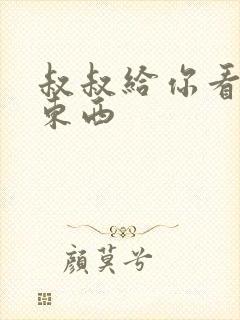 叔叔給你看
東西
顏莫兮